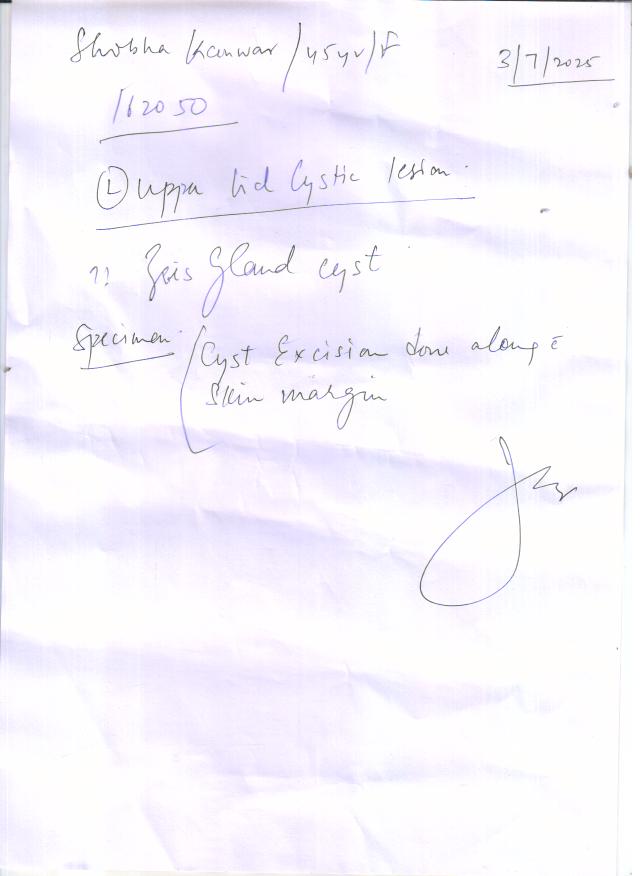 Shobha Kanwar / 45yr/F
3/7/2025
162050
(L) uppr lid Cystic lesion.
?? Zeis Gland cyst
Specimen. Cyst Excision done along c̄
skin margin